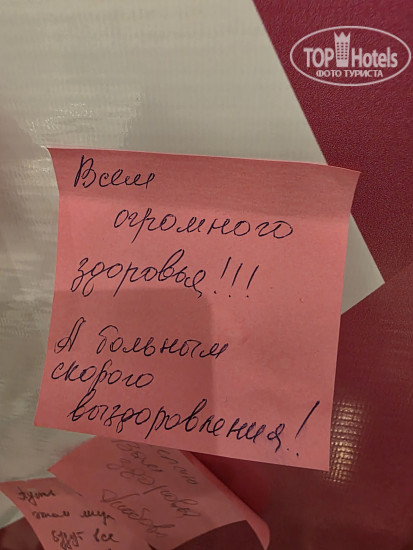 TOP Hotels
ФОТО ТУРИСТА
Всем
огромного
здоровья!!!
А больным
скорого
выздоровления!
этом мир
будт все